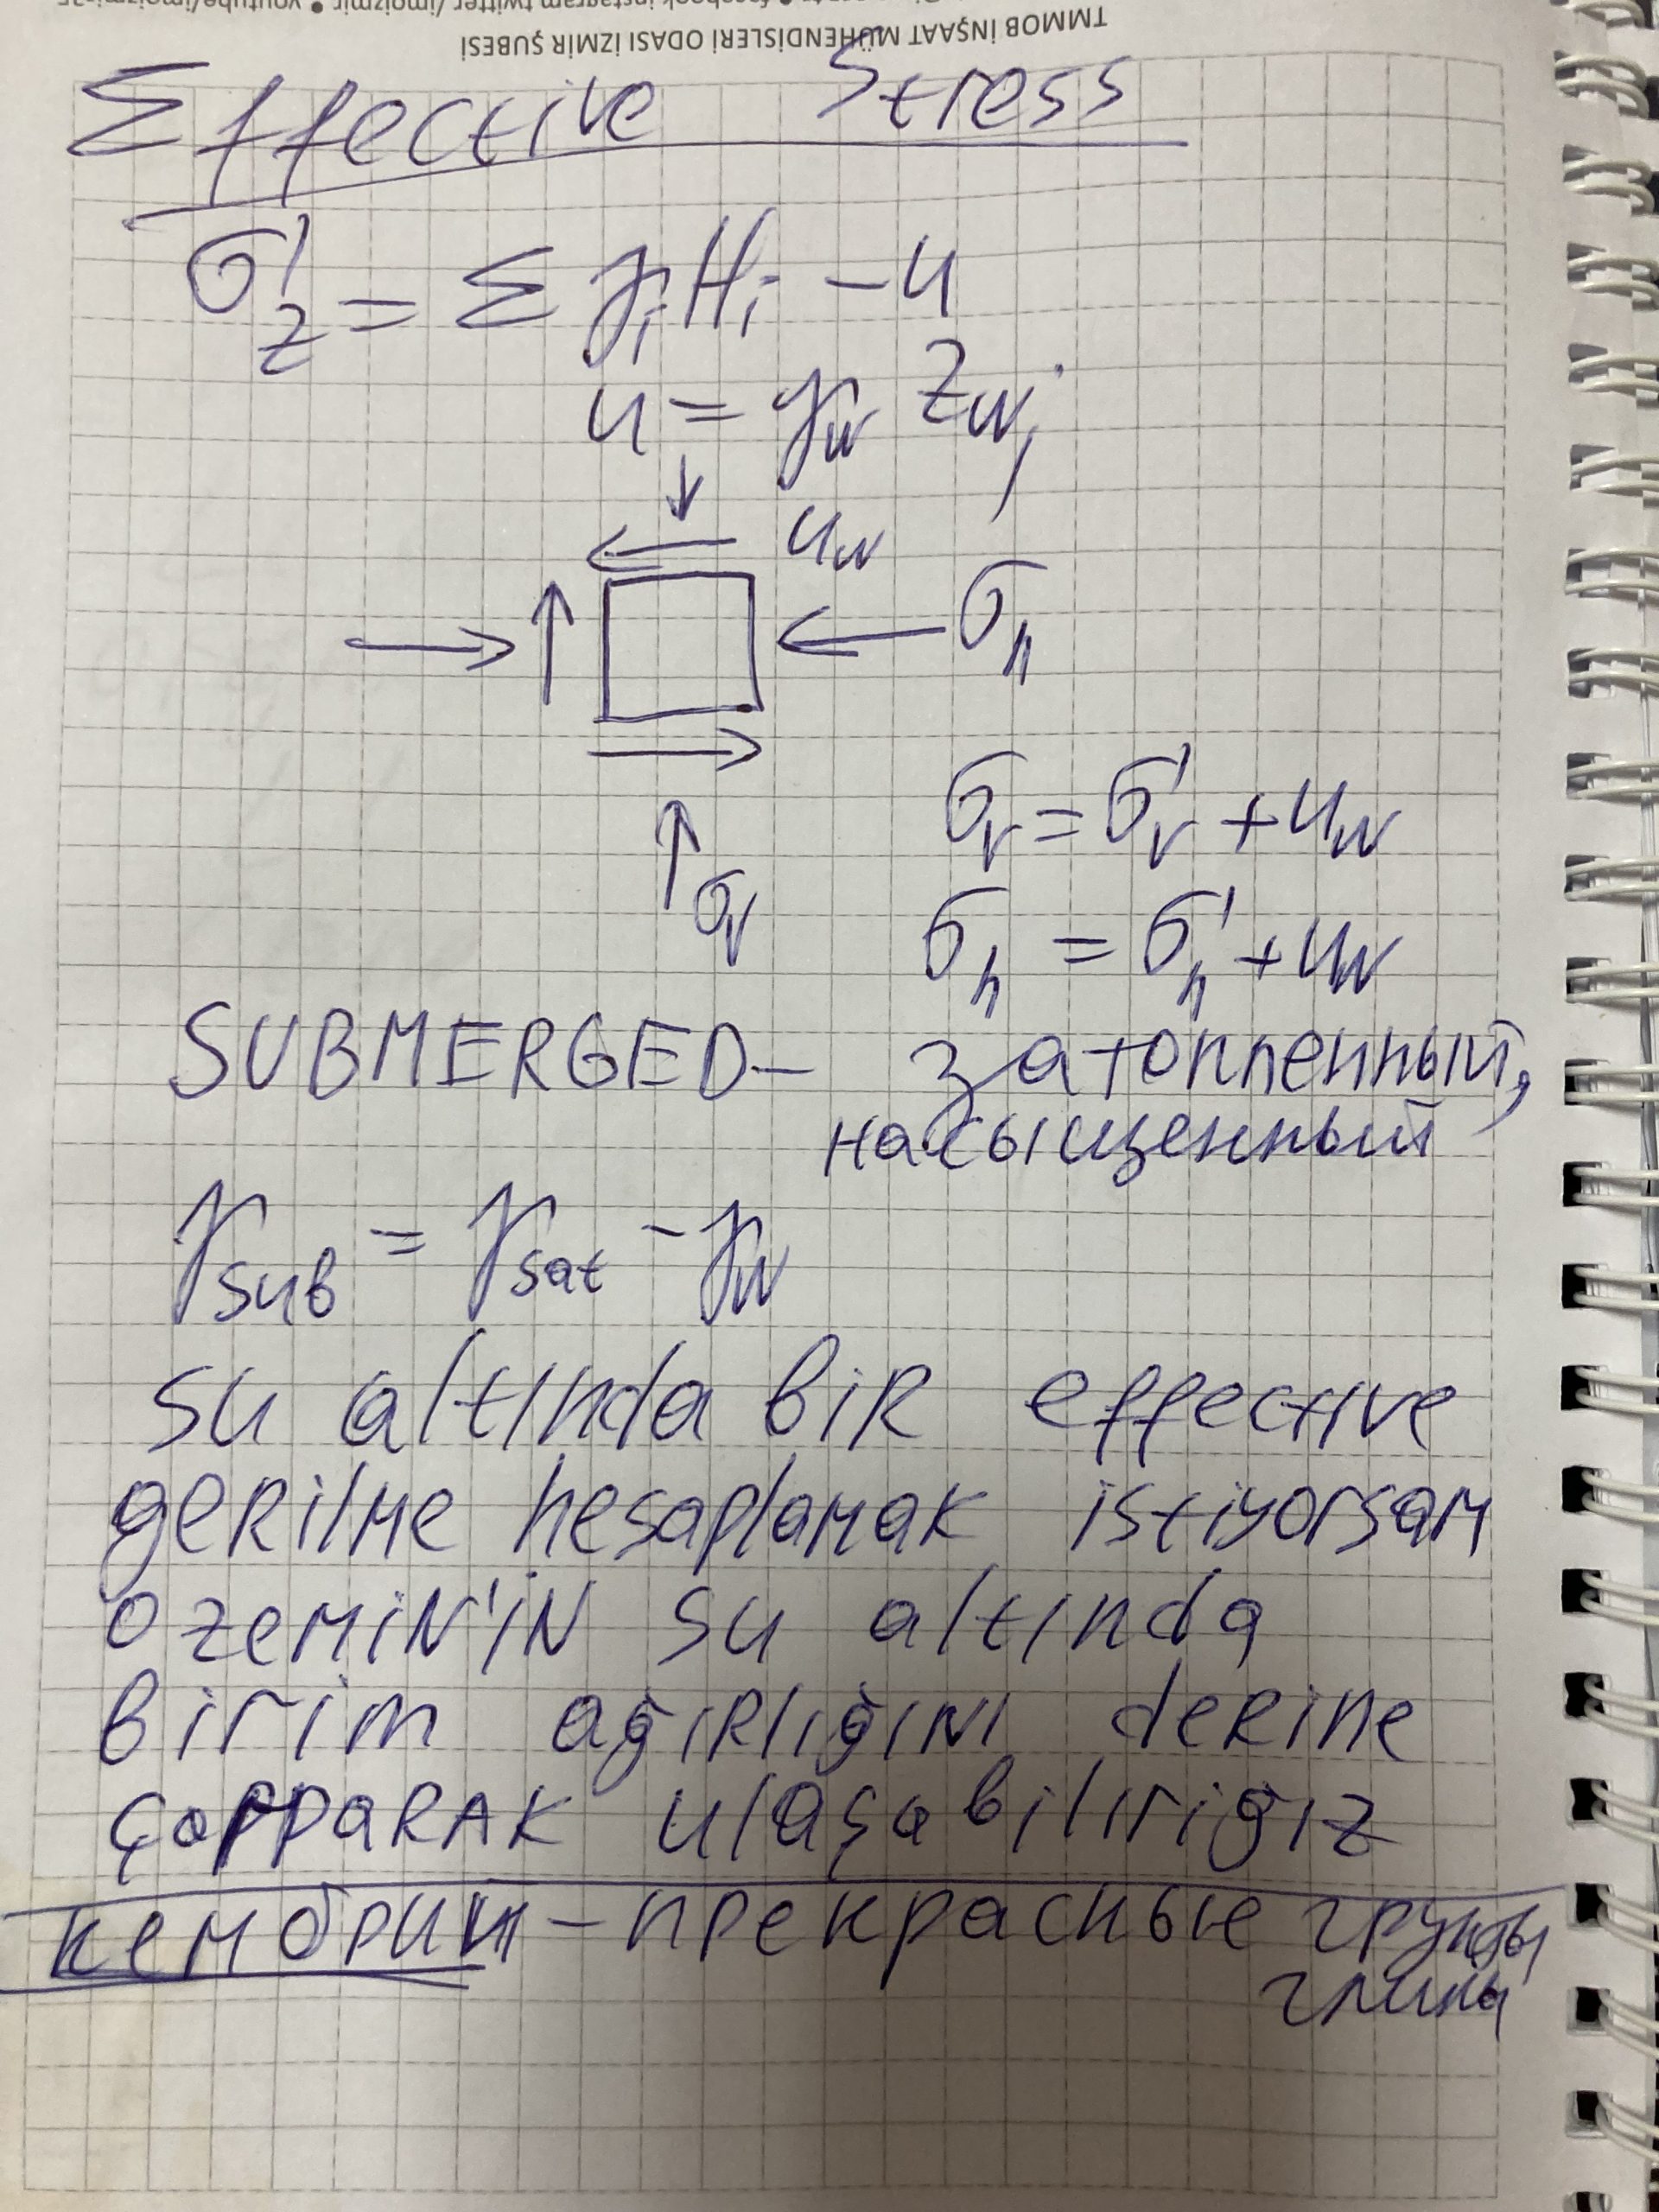 TMMOB İNŞAAT MÜHENDİSLERİ ODASI İZMİR ŞUBESİ
Effective Stress
σ'z = Σ γiHi - u
u = γw zw;
uw
σh
σv = σ'v + uw
σv
σh = σ'h + uw
SUBMERGED - затопленный,
насыщенный
γsub = γsat - γw
su altında bir effective
gerilme hesaplamak istiyorsam
o zemin'in su altında
birim ağırlığını derine
çarpparak ulaşabilirigiz
кембрий - прекрасные грунты
глины